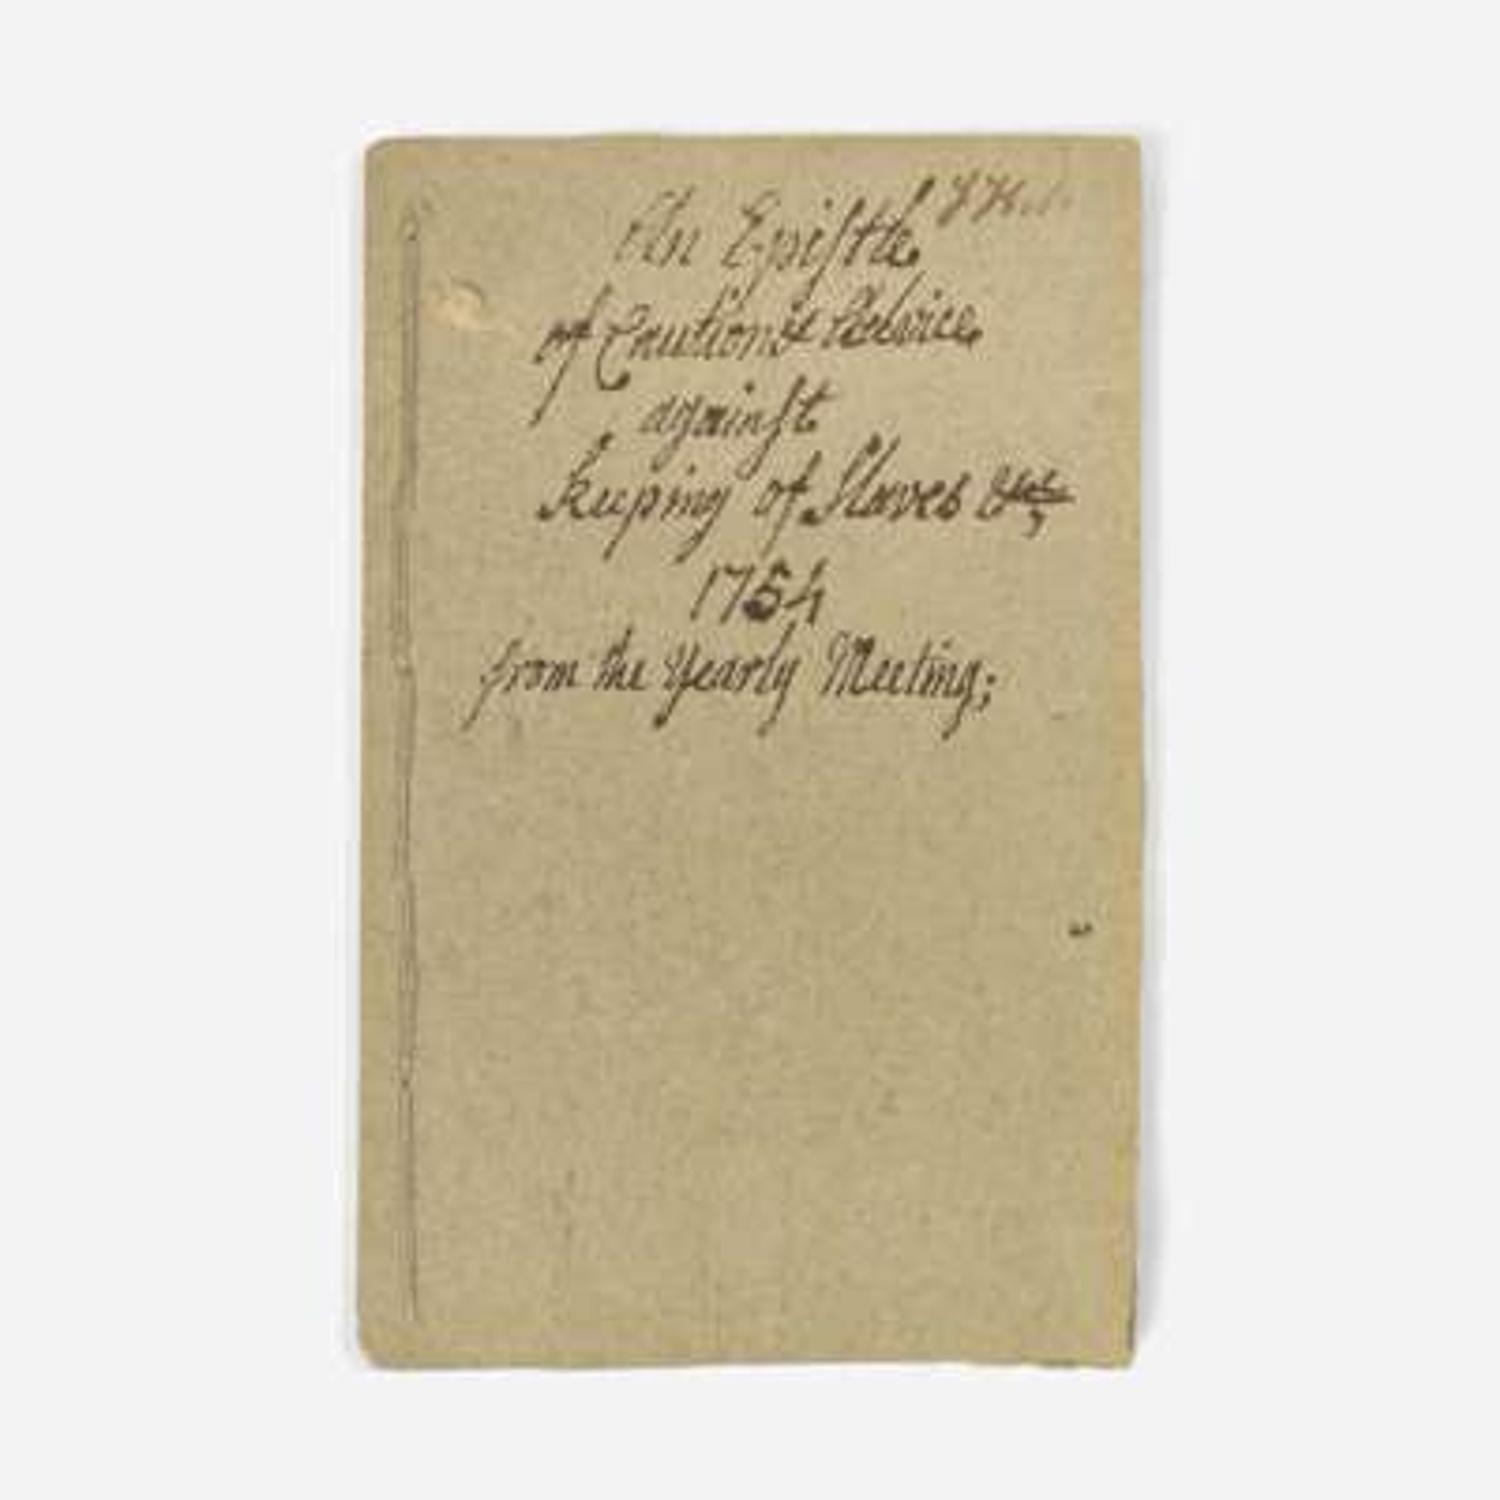 An Epistle
of Caution & Advice
against
keeping of Slaves &c
1754
from the Yearly Meeting;